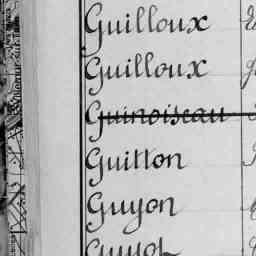 Guilloux
Guilloux
Guinoiseau
Guitton
Guyon
Guyot